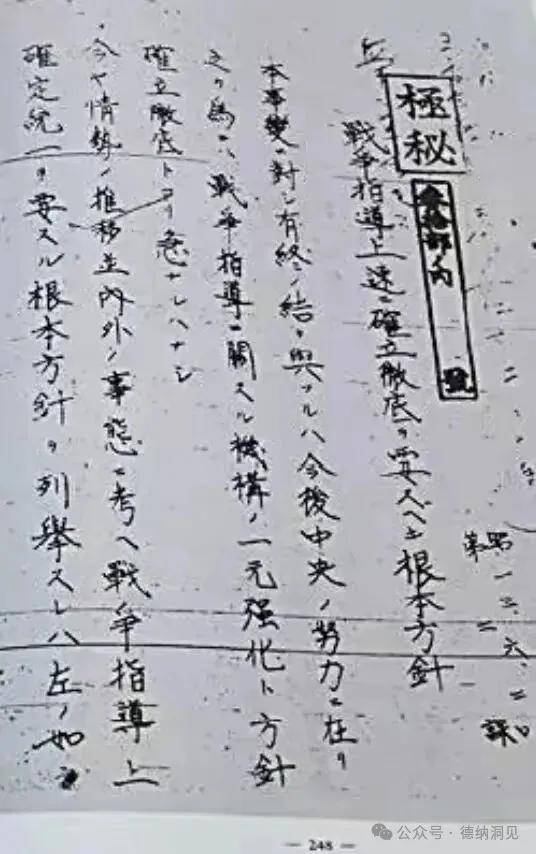 昭一三、六、二
第二課
極秘
部ノ內 號
戦争指導上速ニ確立徹底ヲ要スヘキ根本方針
本事變ニ對シ有終ノ結ヲ與フルハ今後中央ノ努力ニ在リ
之カ爲ニハ戦争指導ニ關スル機構ノ一元强化ト方針
確立徹底トヨリ急ナルハナシ
今ヤ情勢ノ推移並內外ノ事態ヲ考ヘ戦争指導上
確定統一ヲ要スル根本方針ヲ列擧スレハ左ノ如シ
— 248 —
公众号・德纳洞见